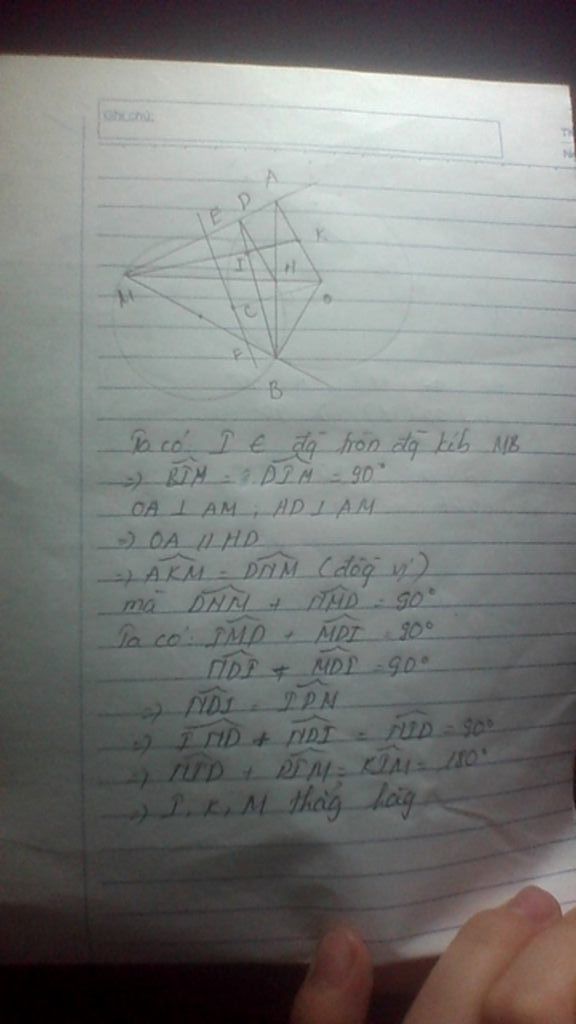 Ghi chú:
A
D
E
K
I
H
M
O
C
F
B
Ta có I ∈ đg tròn đg kíh MB
=> BIM = DIM = 90°
OA ⊥ AM ; HD ⊥ AM
=> OA // HD
=> AKM = DNM (đồg vị)
mà DNM + NMD = 90°
Ta có: IMD + MDI = 90°
NDI + MDI = 90°
=> NDI = IDM
=> IMD + NDI = NID = 90°
=> NID + DIM = KIM = 180°
=> I, K, M thẳg hàg